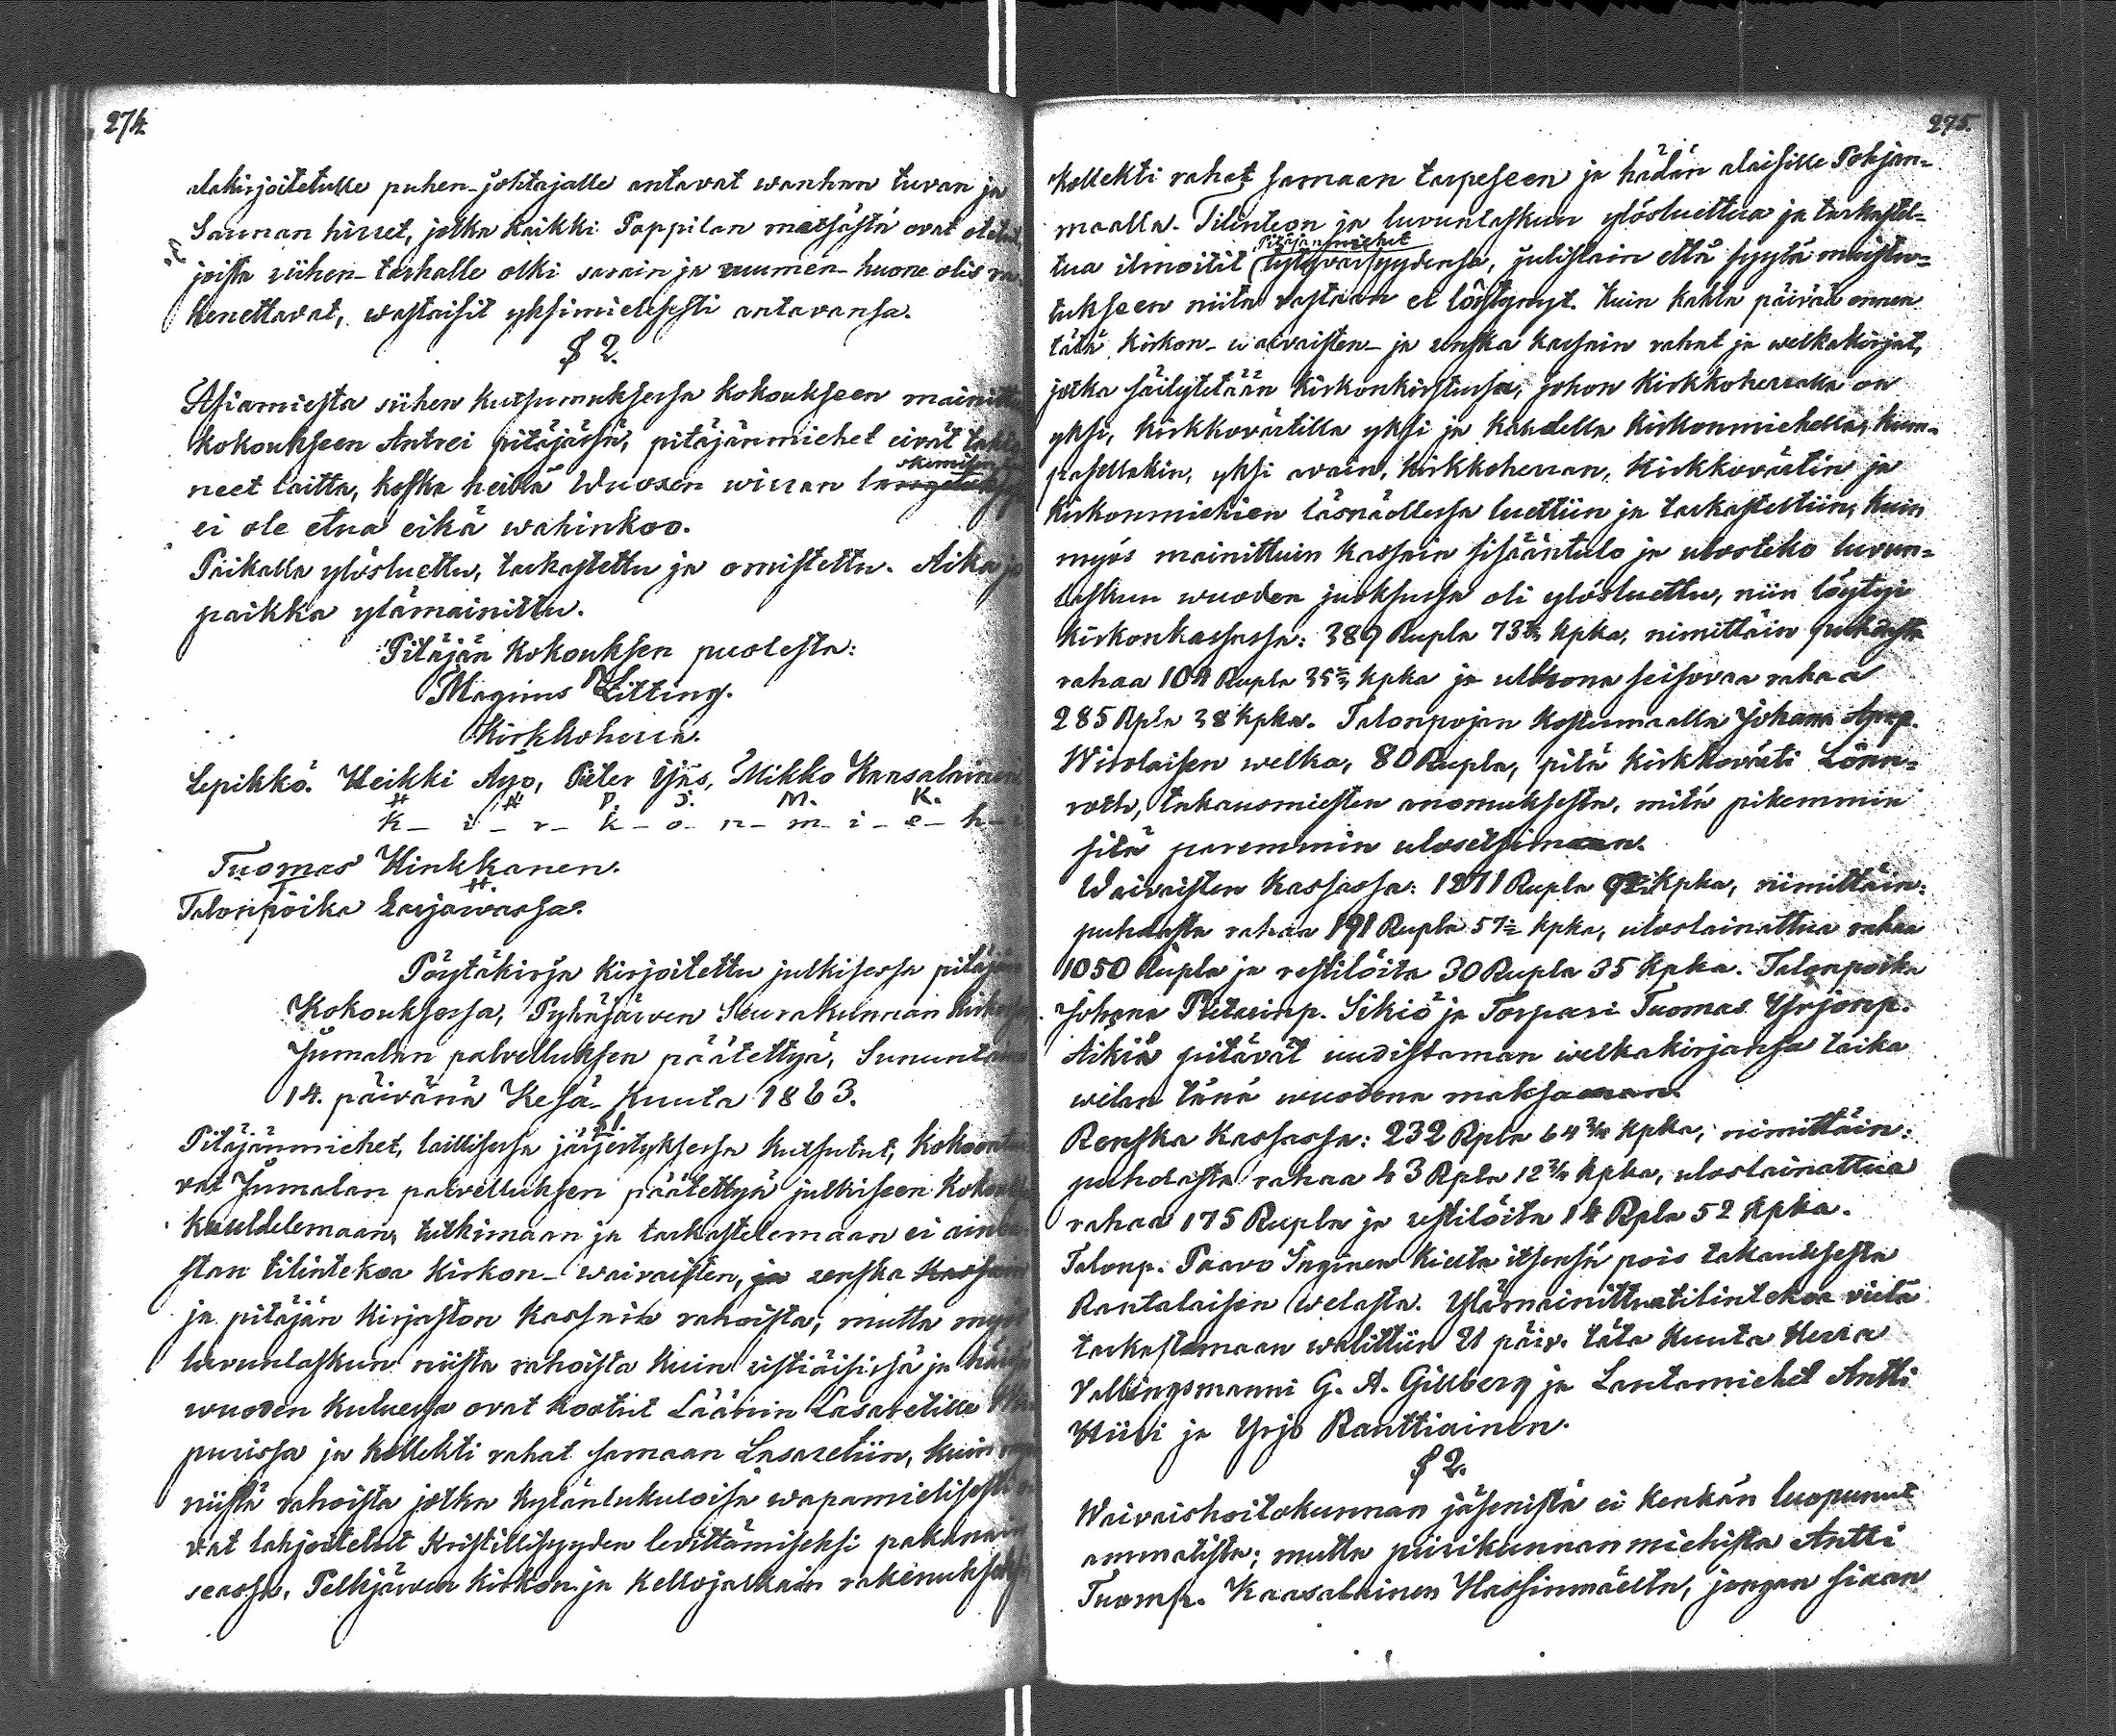 274.
alakirjoitetulle puhen-johtajalle antavat wanhan tuvan ja
Saunan hirret, jotka kaikki Pappilan metsästä ovat otetut
joista riihen-tarhalle olki sarain ja ruumen-huone olis ra-
kenettavat, wastaisit yksimielisesti antavansa.
§ 2.
Asiamiestä siihen kutsumuksessa kokoukseen mainittu
kokoukseen Antrei pitäjässä, pitäjänmiehet eivät
neet laitta, koska heillä Wuoxen wirran
ei ole etua eikä wahinkoo.
Paikalla ylösluettu, tarkastettu ja omistettu. Aika ja
paikka ylämainittu.
Pitäjän Kokouksen puolesta:
Magnus Litting.
Kirkkoherra.
Lepikkö. Heikki Äyö, Pieter Ijäs, Mikko Kaasalainen
H H P. I. M. K.
K - i - r - k - o - n - m - i - e - h - i
Tuomas Hinkkanen.
T H.
Talonpoika Larjawassa.
Pöytäkirja kirjoitettu julkisessa pitäjän
Kokouksessa, Pyhäjärven Seurakunnan kirkossa
Jumalan palvelluksen päätettyä, Sununtaina
14. päivänä Kesä-kuuta 1863.
§ 1.
Pitäjänmiehet, laillisessa järjestyksessä kutsutut, kokoontu-
vat Jumalan palvelluksen päätettyä julkiseen Kokoukseen
kuuldelemaan, tutkimaan ja tarkastelemaan ei ainoa-
stan tilintekoa Kirkon- waivaisten, ja renska Kassan
ja pitäjän kirjaston Kassain rahoista, mutta myös
luvunlaskun niistä rahoista kuin ristiäisissä ja häissä
wuoden kuluessa ovat kootut Läänin Lasaretille Wii-
purissa ja kollekti rahat samaan Lasaretiin, kuin myös
niistä rahoista jotka kylänlukuloisa wapamielisesti o-
vat lahjoitetut Kristillisyyden levittämiseksi pakanain
seassa, Pelkjärven kirkon ja kellojalkain rakenukseksi,
275.
kollekti rahat samaan tarpeseen ja hädän alaisille Pohjan-
maalla. Tilinteon ja luvunlaskun ylösluettua ja tarkastel-
Pitäjänmiehet
tua ilmoitit tytyväisyydensä, julistain että syytä muistu-
tukseen niitä vastaan ei löytynyt. Kuin kahta päivää ennen
tätä kirkon- waivaisten- ja renska kassain rahat ja welkakirjat,
jotka säilytetään kirkonkirstussa, johon Kirkkoherralla on
yksi, kirkkovärtilla yksi ja kahdella kirkonmiehella, kum-
pasellakin, yksi avain, kirkkoherran, kirkkovärtin ja
kirkonmiehien läsnäollessa luettiin ja tarkasteltiin, kuin
myös mainittuin kassain sisääntulo ja ulosteko luvun-
laskun wuoden juoksussa oli ylösluettu, niin löytyi
kirkonkassassa: 389 Rupla 73 2/3 kpka, nimittäin puhdasta
rahaa 104 Rupla 35 2/3 kpka ja ulkona seisovaa rahaa
285 Rpla 38 kpka. Talonpojan Kostumaalla Johana Aprp.
Wirolaisen welka, 80 Rupla, pitä kirkkovärti Lönn-
roth, takausmiesten anomuksesta, mitä pikemmin
sitä paremmin ulosetsimaan.
Waivaisten kassassa: 1271 Rupla kpka, nimittäin:
puhdasta rahaa 191 Rupla 57 kpka, uloslainattua rahaa
1050 Rupla ja restilöitä 30 Rupla 35 kpka. Talonpoika
Johana Pietarinp. Sikiö ja Torpari Tuomas Yrjönp.
Aikiä pitävät uudistaman welkakirjansa taika
welan tänä wuodena maksaman.
Renska Kassassa: 232 Rpla 64 3/4 kpka, nimittäin:
puhdasta rahaa 43 Rpla 12 3/4 kpka, uloslainattua
rahaa 175 Rupla ja restilöitä 14 Rpla 52 kpka.
Talonp. Paavo Inginen kielta itsensä pois takauksesta
Rantalaisen welasta. Ylämainittua tilintekoa vielä
tarkastamaan walittiin 21 päiv. täta kuuta Herra
Vallingsmanni G. A. Gillberg ja Lautamiehet Antti
Hiiri ja Yrjö Ranttiainen.
§ 2.
Waivaishoitokunnan jäsenistä ei kenkän luopunut
ammatista; mutta piirikunnan miehistä Antti
Tuomp. Kaasalainen Hassinmäelta, jongan siaan